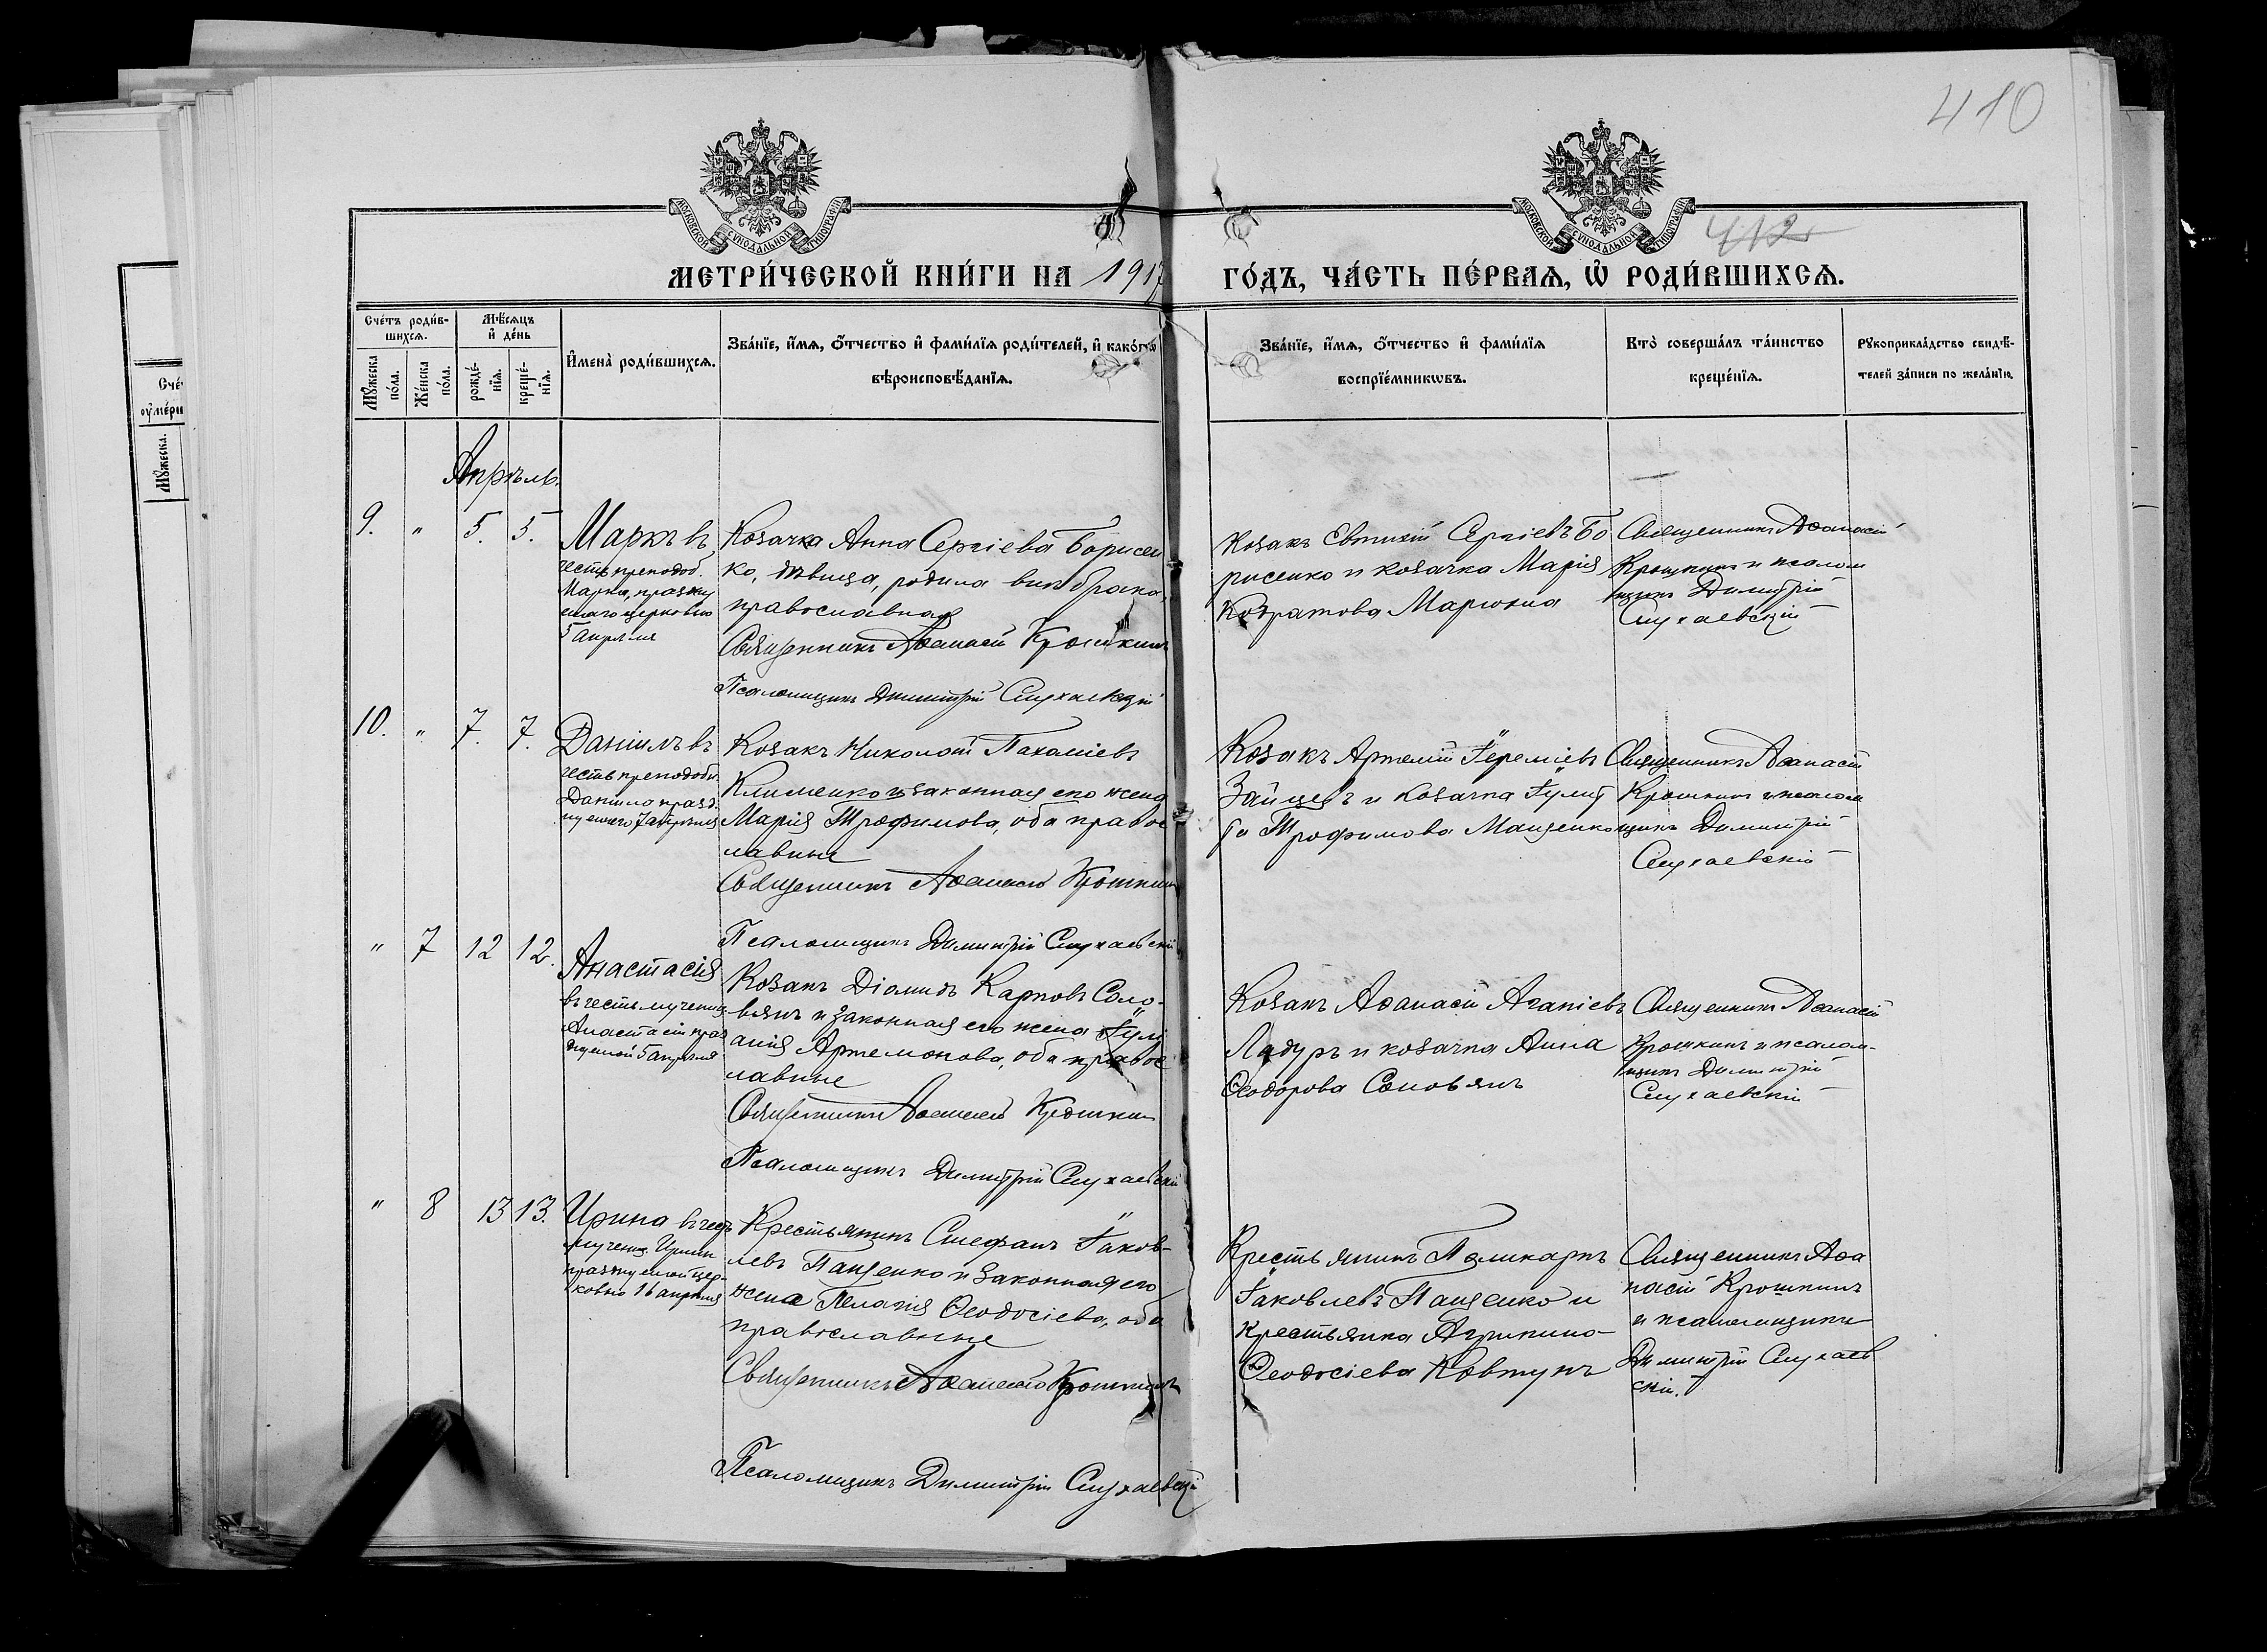 410
412
МОСКОВСКОЙ СѴНОДАЛЬНОЙ ТИПОГРАФІИ
МОСКОВСКОЙ СѴНОДАЛЬНОЙ ТИПОГРАФІИ
МЕТРИ́ЧЕСКОЙ КНИ́ГИ НА 1917
ГО́ДЪ, ЧА́СТЬ ПЕ́РВАѦ, Ѡ РОДИ́ВШИХСѦ.
Сче́тъ роди́в-
шихсѧ.
Мꙋ́жеска по́ла.
Же́нска по́ла.
Мѣ́сѧцъ
и҆ де́нь
рожде́-
нїѧ.
креще́-
нїѧ.
И҆мена̀ роди́вшихсѧ.
Зва́нїе, и҆́мѧ, ѻ҆́тчество и҆ фами́лїѧ роди́телей, и҆ како́гѡ
вѣроисповѣ́данїѧ.
Зва́нїе, и҆́мѧ, ѻ҆́тчество и҆ фами́лїѧ
воспрїе́мникѡвъ.
Кто̀ соверша́лъ та́инство
креще́нїѧ.
Рꙋкоприкла́дство свидѣ́-
телей за́писи по жела́нїю.
Сче́
ᲂу҆ме́рш
Мꙋ́жеска.
Апрѣль.
9. " 5. 5.
Маркъ въ
честь преподоб.
Марка, праздну
емаго церковью
5 апрѣля
Козачка Анна Сергіева Борисен
ко, дѣвица, родила внѣ брака,
православная
Священникъ Аѳанасій Крошкинъ
Псаломщикъ Димитрій Слухаевскій
Козакъ Евтихій Сергіевъ Бо
рисенко и козачка Марія
Кодратова Марюхна
Священникъ Аѳанасій
Крошкинъ и псалом
щикъ Димитрій
Слухаевскій
10. " 7. 7.
Даніилъ въ
честь преподобн.
Даніила празд.
нуемаго 7 апрѣля
Козакъ Николай Пахоміевъ
Клименко и законная его жена
Марія Трофимова, оба правос
лавные
Священникъ Аѳанасій Крошкинъ
Псаломщикъ Димитрій Слухаевскій
Козакъ Артемій Іереміевъ
Зайцевъ и козачка Іулит
та Трофимова Мащенко
Священникъ Аѳанасій
Крошкинъ и псалом
щикъ Димитрій
Слухаевскій
" 7 12 12.
Анастасія
въ честь мучениц.
Анастасіи праз
днуемой 15 апрѣля
Козакъ Діомидъ Карповъ Соло-
вьянъ и законная его жена Іулі
анія Артемонова, оба правос
лавные
Священникъ Аѳанасій Крошкинъ
Псаломщикъ Димитрій Слухаевскій
Козакъ Аѳанасій Агапіевъ
Ладуръ и козачка Анна
Ѳеодорова Соловьянъ
Священникъ Аѳанасій
Крошкинъ и псалом-
щикъ Димитрій
Слухаевскій
" 8 13 13.
Ирина въ чест
мучениц. Ирины
празднуемой цер-
ковью 16 апрѣля
Крестьянинъ Стефанъ Іаков-
левъ Пащенко и законная его
жена Пелагія Ѳеодосіева, оба
православные
Священникъ Аѳанасій Крошкинъ
Псаломщикъ Димитрій Слухаевскій
Крестьянинъ Поликарпъ
Іаковлевъ Пащенко и
крестьянка Агрипина
Ѳеодосіева Ковтунъ
Священникъ Аѳа
насій Крошкинъ
и псаломщикъ
Димитрій Слухаев
скій.